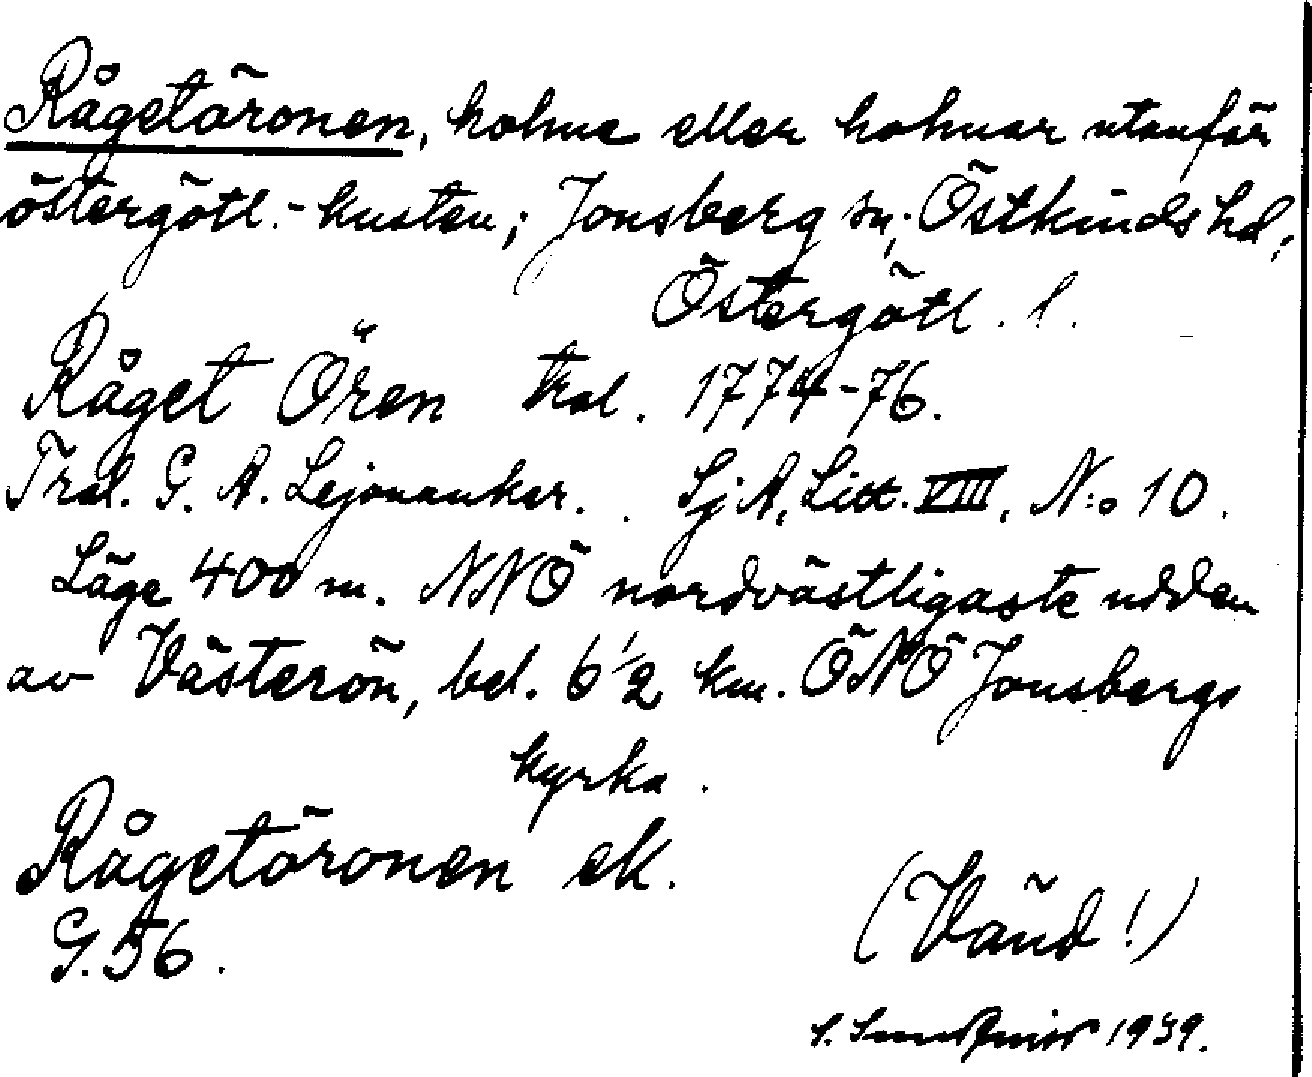 Rågetäronen, holme eller holmar utanför
östergötl.-kusten; Jonsberg sn; Östkinds hd,
Östergötl. l.
Råget Ören tral. 1774-76.
Tral. G. A. Lejonanker. SjA, Litt. VIII, N:o 10.
Läge 400 m. NNÖ nordvästligaste udden
av Västerön, bel. 6 1/2 km. ÖNÖ Jonsbergs
kyrka.
Rågetäronen ek.
G. 56.
(Vänd!)
1939.